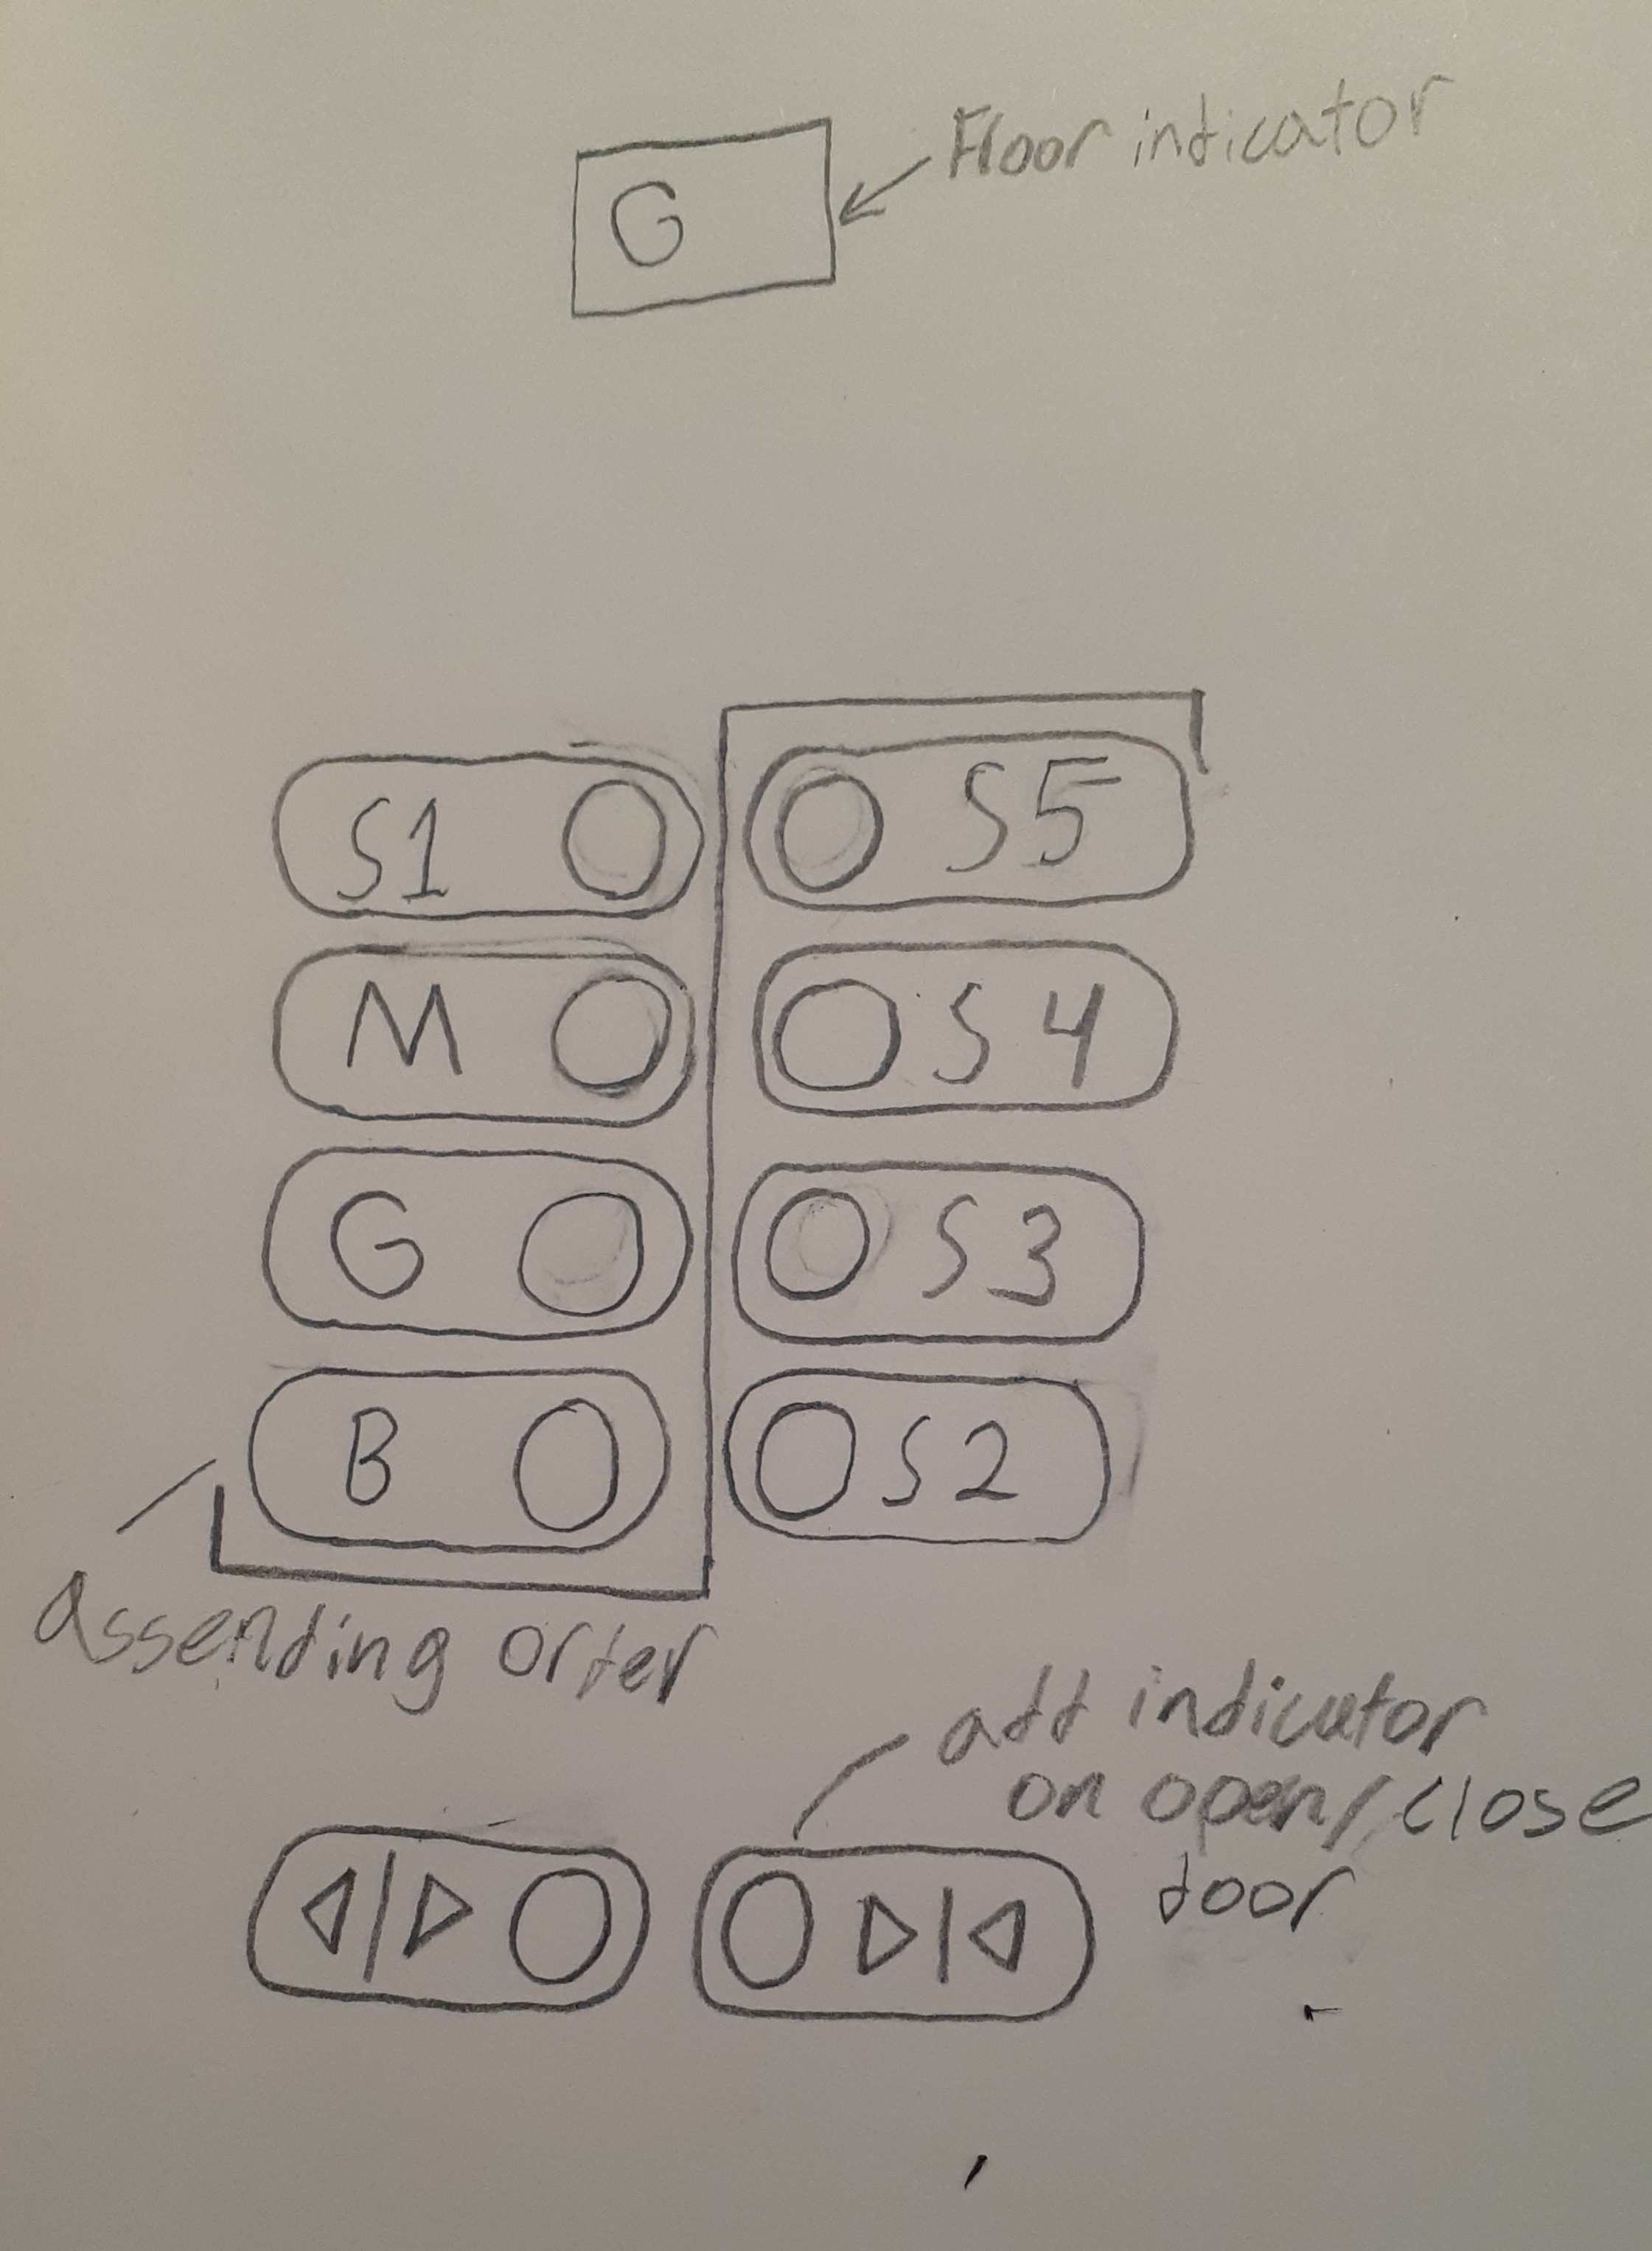 G
Floor indicator
S1
S5
M
S4
G
S3
B
S2
assending order
add indicator
on open/close
door